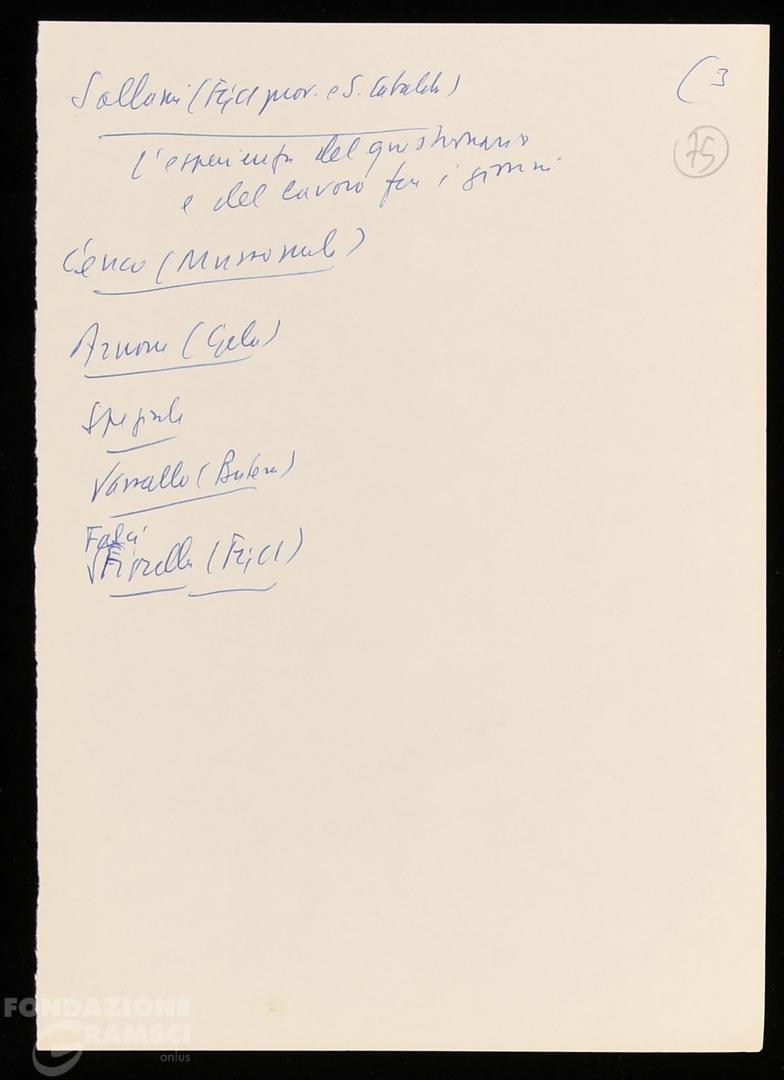 Sollami (FGCI prov. e S. Cataldo)
(3
75
L'esperienza del questionario
e del lavoro fra i giovani
(Mussomeli)
Arnone (Gela)
Speziale
Vassallo (Butera)
Falci
Fiorella (FGCI)
FONDAZIONE
GRAMSCI
onlus